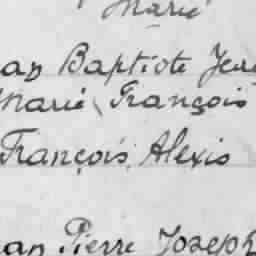 Marie
an Baptiste Jea
Marie François
François Alexis
an Pierre Joseph